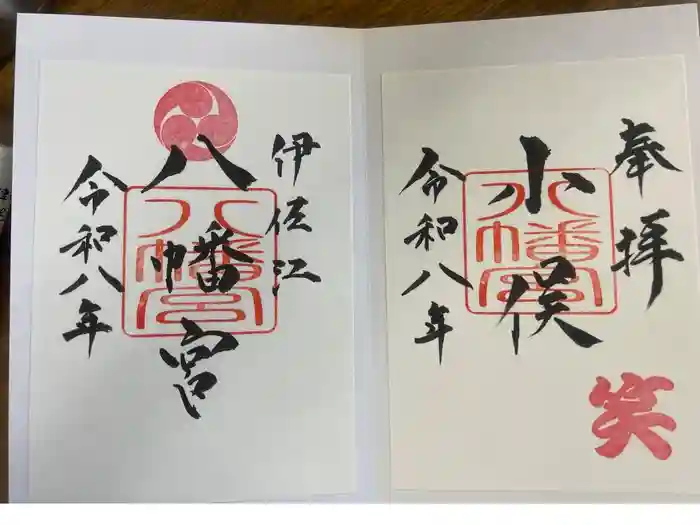 奉拝
小俣
令和八年
八幡宮
笑
伊佐江
八幡宮
令和八年
八幡宮